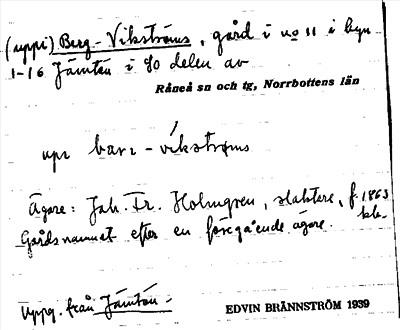 (uppi) Berg-Vikströms, gård i no 11 i byn
1-16 Jämtön i SO delen av
Råneå sn och tg, Norrbottens län
upı barı - víkstrøms
Ägare: Joh. Fr. Holmgren, slaktare, f. 1863
Gårdsnamnet efter en föregående ägare.
Uppg. från Jämtön:
EDVIN BRÄNNSTRÖM 1939